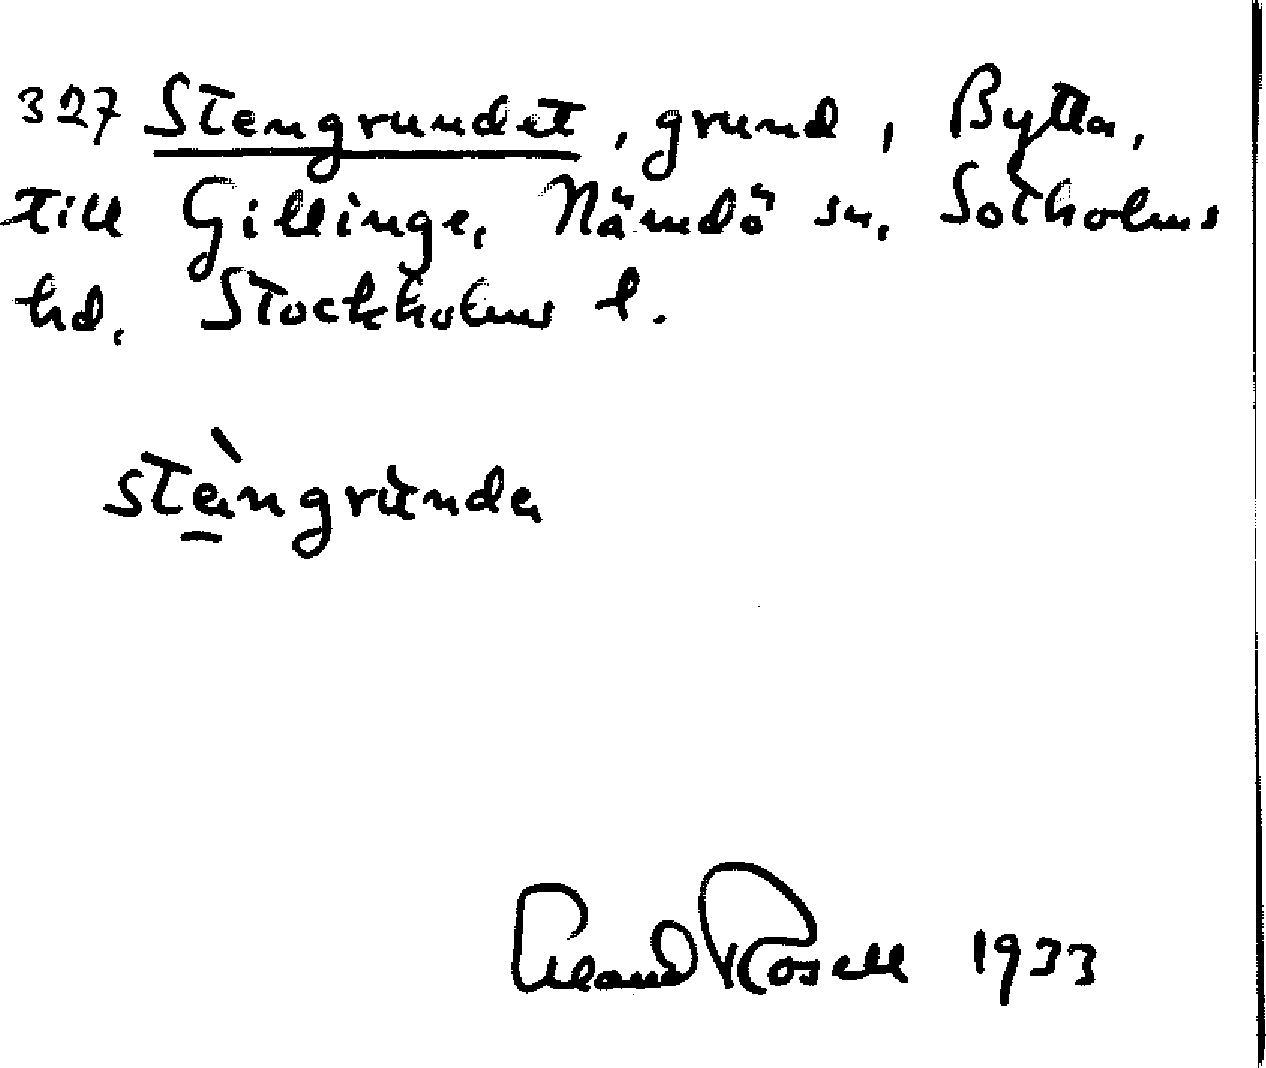 327 Stengrundet, grund, Bytta,
till Gillinge, Nämdö sn, Sotholms
hd, Stockholms l.
stèngrùnda
Rosell 1933